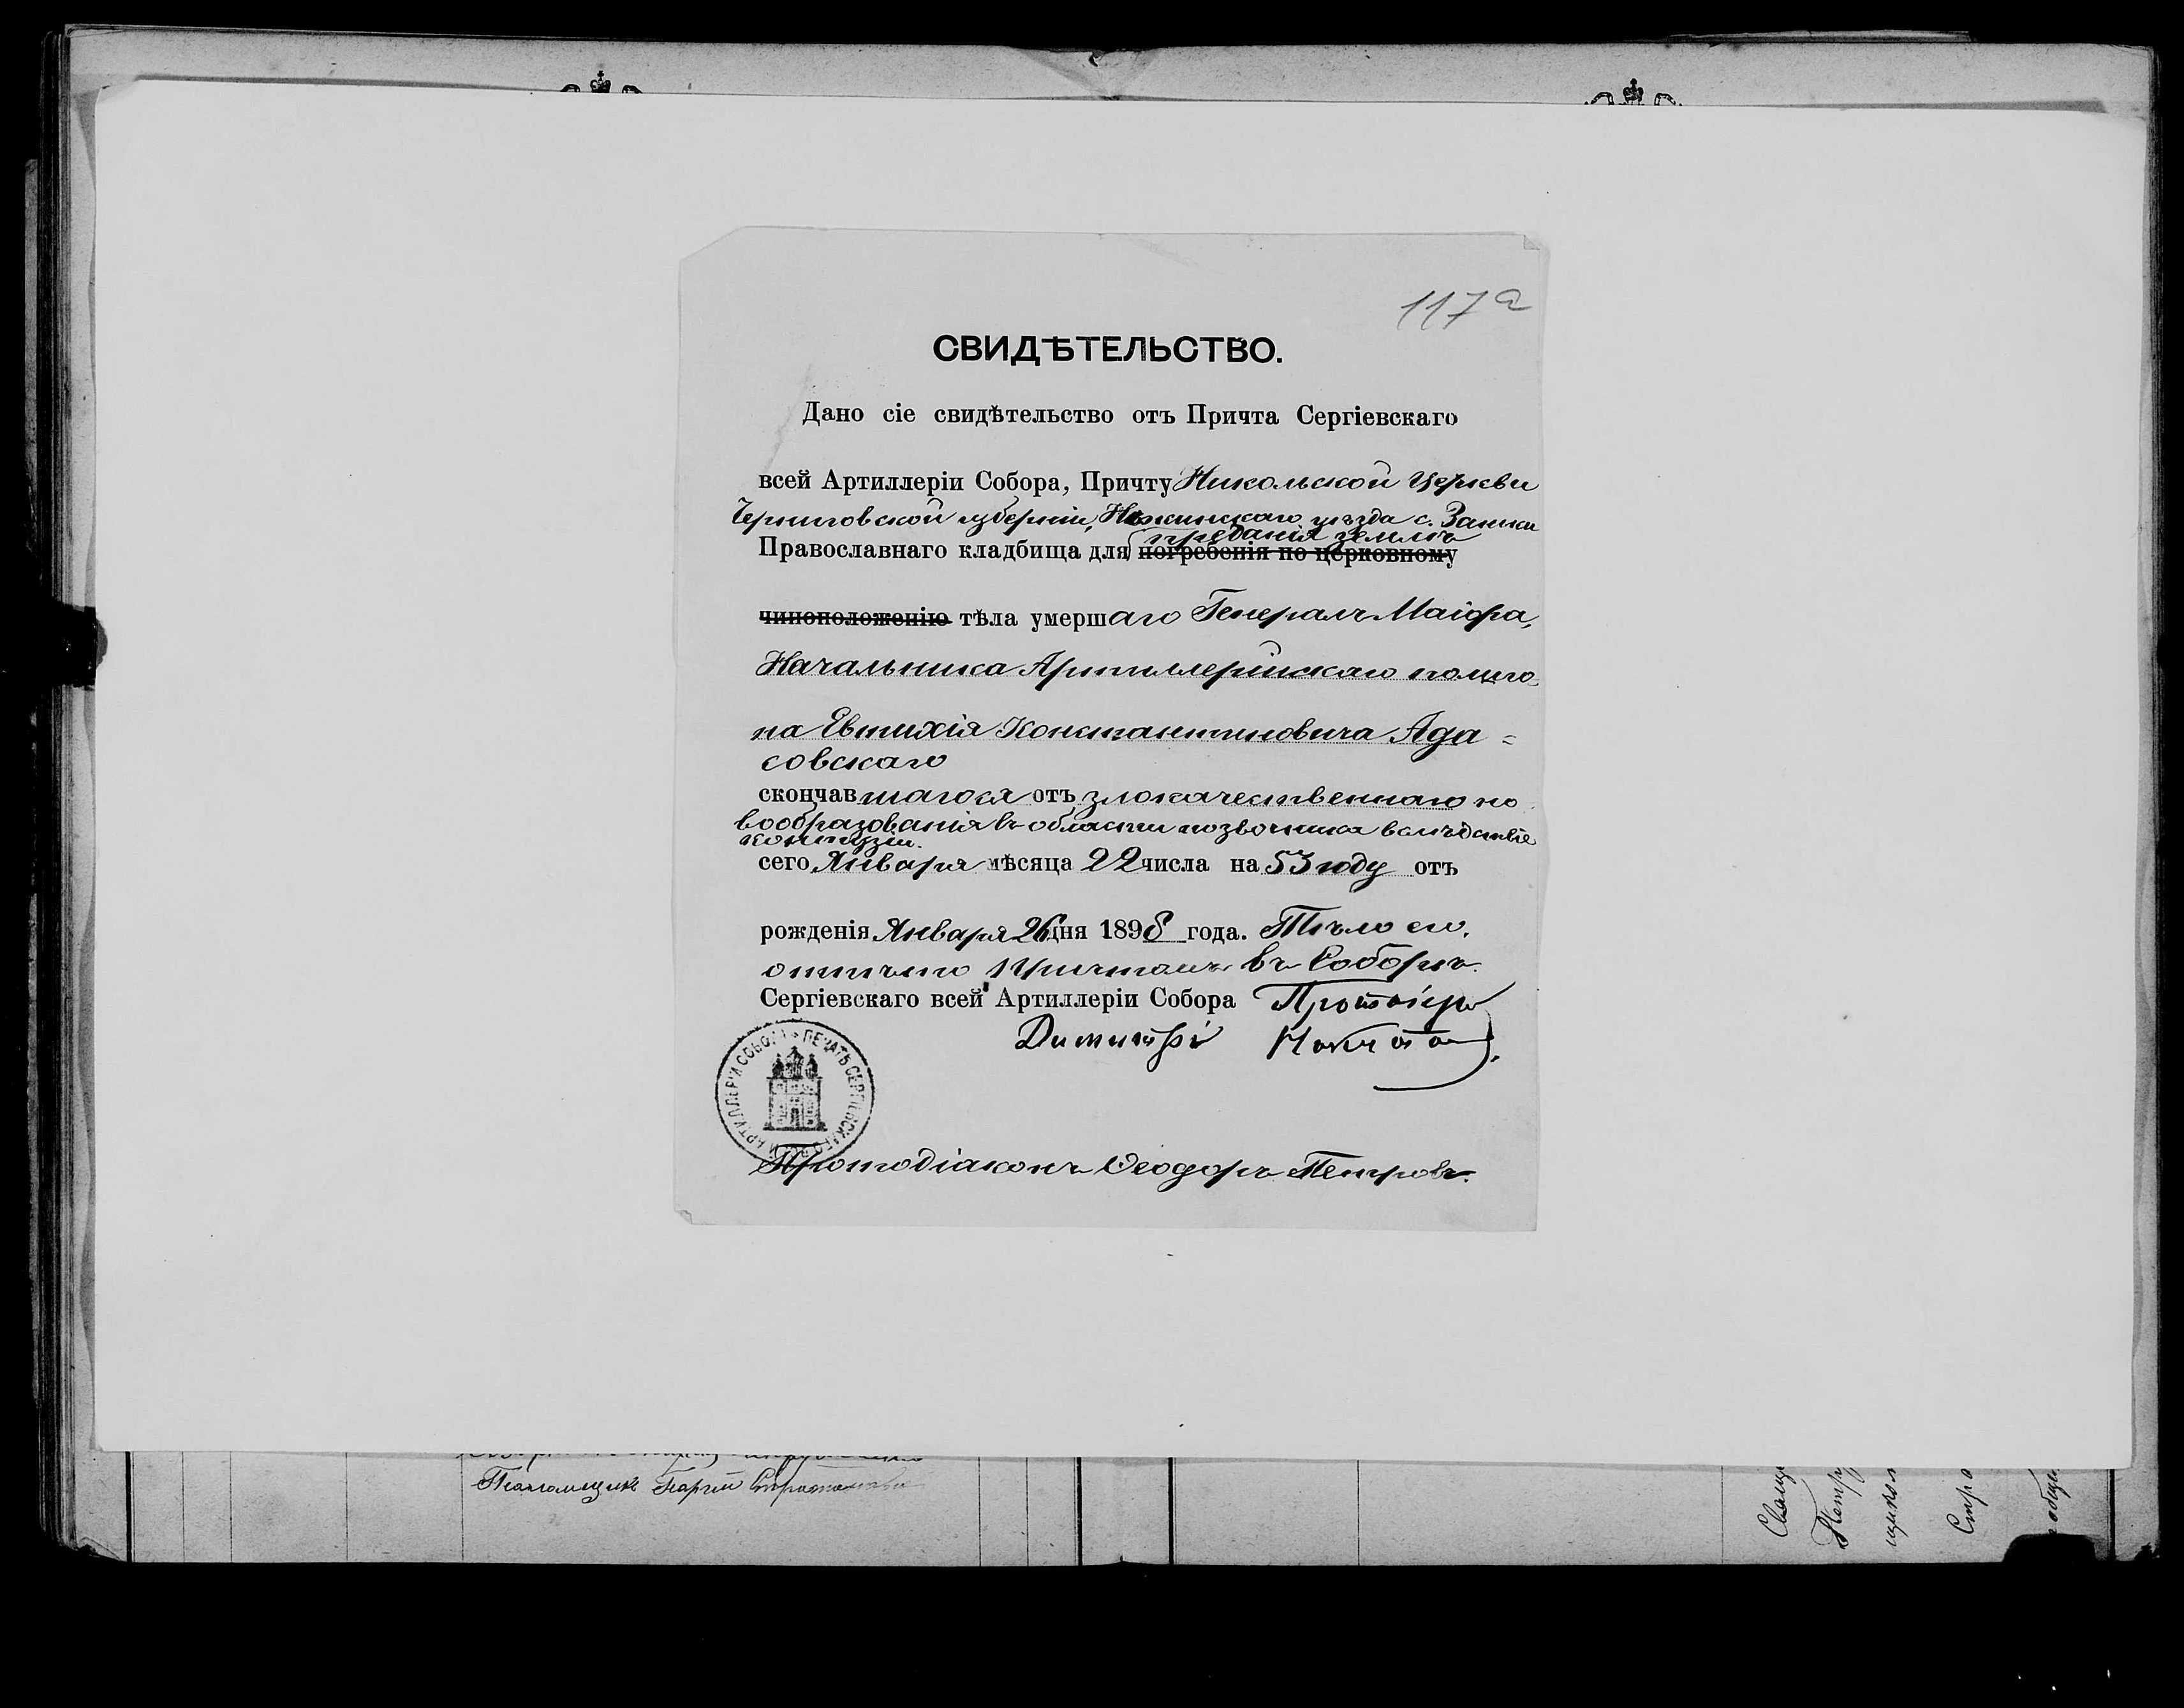 117а
СВИДѢТЕЛЬСТВО.
Дано сіе свидѣтельство отъ Причта Сергіевскаго
всей Артиллеріи Собора, Причту Никольской Церкви
Черниговской губерніи, Нѣжинскаго уѣзда с. Заньки
преданія землѣ
Православнаго кладбища для погребенія по церковному
чиноположенію тѣла умершаго Генералъ Маіора,
Начальника Артиллерійскаго полиго-
на Евтихія Константиновича Ада=
совскаго
скончавшагося отъ злокачественнаго но
вообразованія въ области позвочника вслѣдствіе
контузіи.
сего Января мѣсяца 22 числа на 53 году отъ
рожденія Января 26 дня 1898 года. Тѣло его
отпѣто Причтомъ въ Соборѣ.
Сергіевскаго всей Артиллеріи Собора Протоіерей
Димитрій
ПЕЧАТЬ СЕРГІЕВСКАГО ВСЕЙ АРТИЛЛЕРІИ СОБОРА
Протодіаконъ Ѳеодоръ Петровъ.
Псаломщикъ Георгій
Свящ
Петр
щикол
Стра